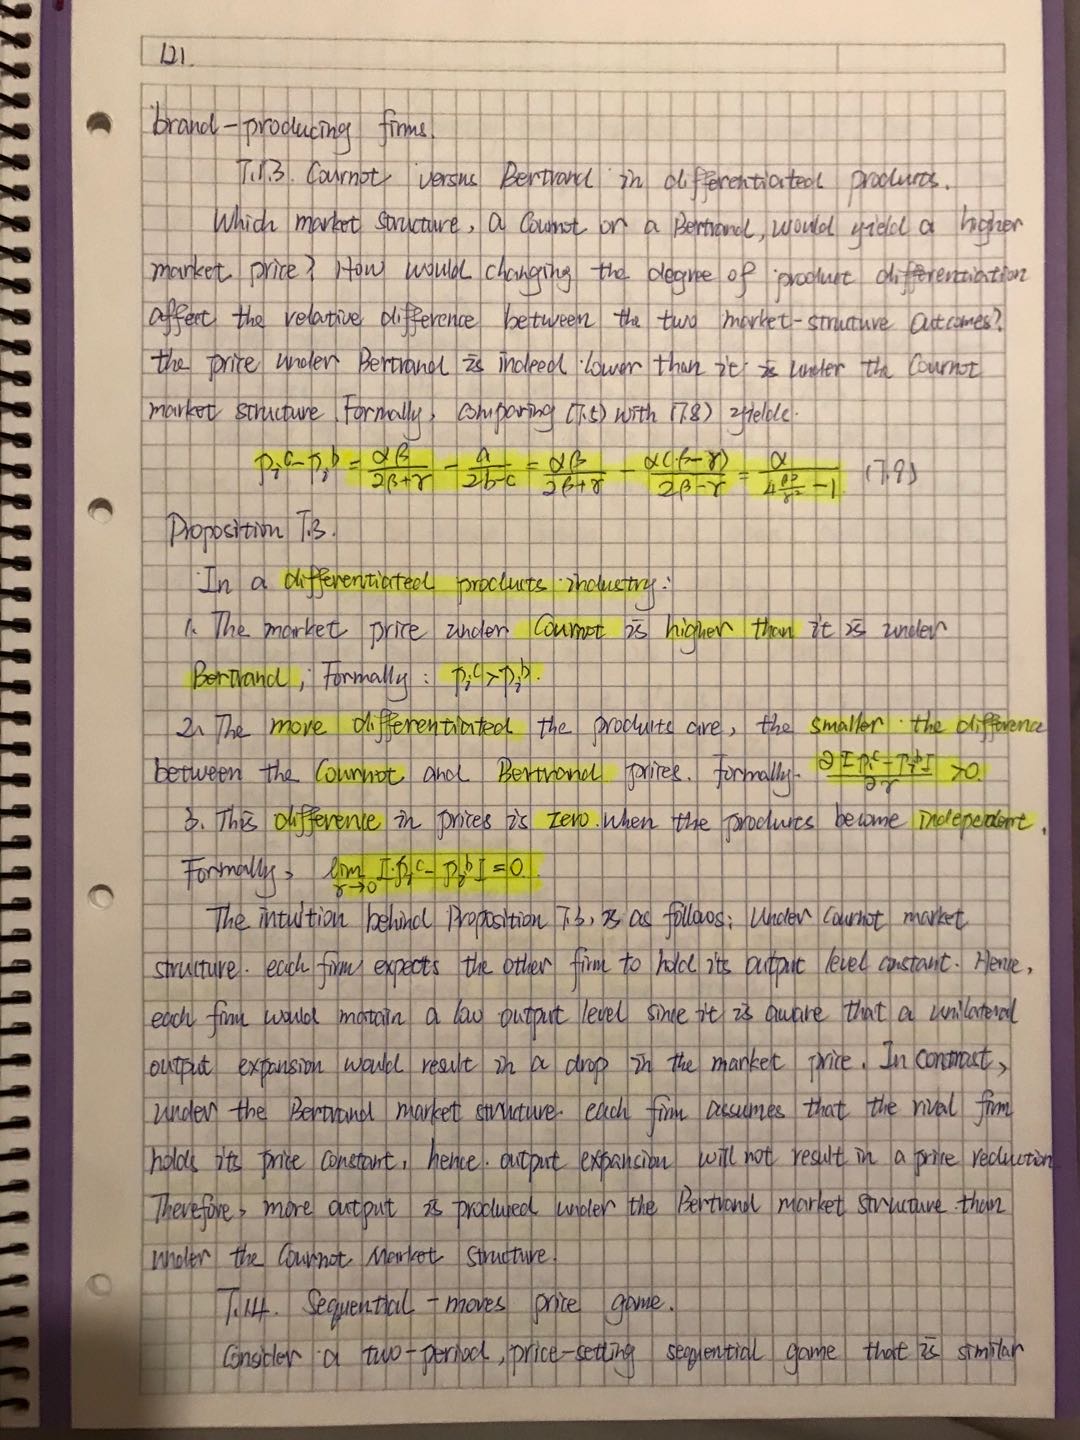 121.
brand-producing firms.
7.1.3. Cournot versus Bertrand in differentiated products.
Which market structure, a Cournot or a Bertrand, would yield a higher
market price? How would changing the degree of product differentiation
affect the relative difference between the two market-structure outcomes?
the price under Bertrand is indeed lower than it is under the Cournot
market structure. Formally, comparing (7.5) with (7.8) yields.
pᵢᶜ - pᵢᵇ = αβ/(2β+γ) - a/(2b-c) = αβ/(2β+γ) - α(β-γ)/(2β-γ) = α/(4β²/γ² - 1) (7.9)
Proposition 7.3.
In a differentiated products industry:
1. The market price under Cournot is higher than it is under
Bertrand; Formally: pᵢᶜ > pᵢᵇ.
2. The more differentiated the products are, the smaller the difference
between the Cournot and Bertrand prices. Formally. ∂[pᵢᶜ - pᵢᵇ]/∂γ > 0.
3. This difference in prices is zero when the products become independent.
Formally, lim γ→0 [pᵢᶜ - pᵢᵇ] = 0.
The intuition behind Proposition 7.3, is as follows: Under Cournot market
structure. each firm expects the other firm to hold its output level constant. Hence,
each firm would maintain a low output level since it is aware that a unilateral
output expansion would result in a drop in the market price. In contrast,
under the Bertrand market structure each firm assumes that the rival firm
holds its price constant, hence. output expansion will not result in a price reduction
Therefore, more output is produced under the Bertrand market structure than
under the Cournot Market structure.
7.1.4. Sequential-moves price game.
Consider a two-period, price-setting sequential game that is similar